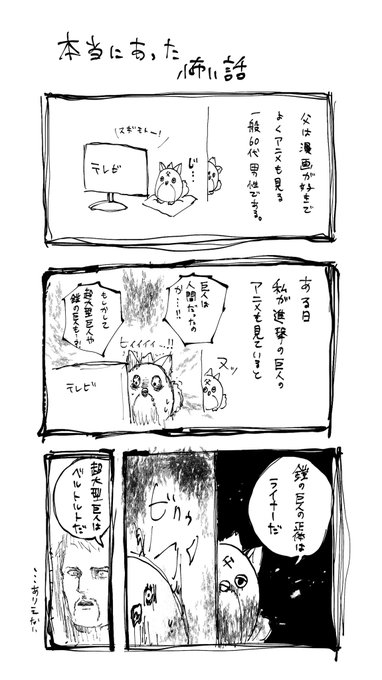 本当にあった
怖い話
父は漫画が好きで
よくアニメも見る
一般60代男性である。
じ…
スギモトー!
テレビ
ある日
私が進撃の巨人の
アニメも見ていると
ヌッ
巨人は
人間だったの
か…!!
もしかして
超大型巨人や
鎧の巨人も…?!
ヒィィィィ…!!
テレビ
鎧の巨人の正体は
ライナーだ
超大型巨人は
ベルトルトだ
…ありえない